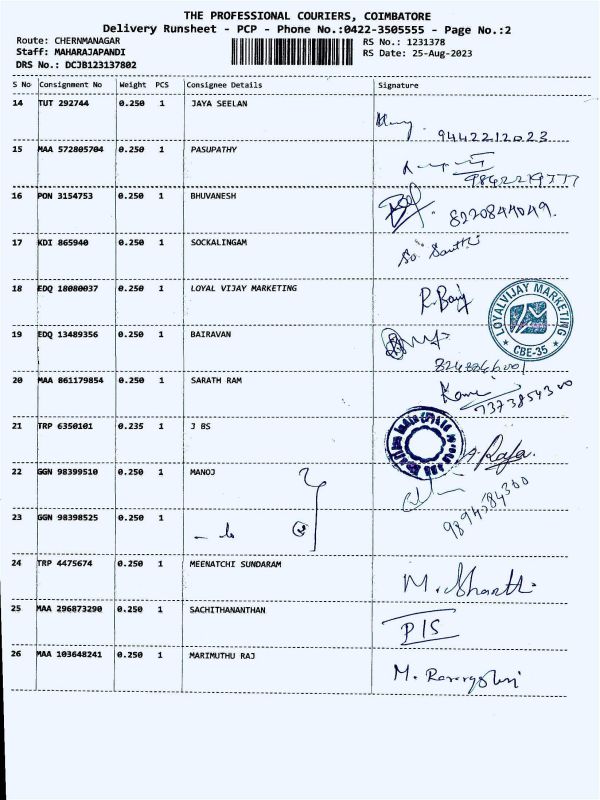 THE PROFESSIONAL COURIERS, COIMBATORE
Delivery Runsheet - PCP - Phone No.:0422-3505555 - Page No.:2
Route: CHERNMANAGAR RS No.: 1231378
Staff: MAHARAJAPANDI RS Date: 25-Aug-2023
DRS No.: DCJB123137802
S No Consignment No Weight PCS Consignee Details Signature
14 TUT 292744 0.250 1 JAYA SEELAN
9442212023
15 MAA 572805704 0.250 1 PASUPATHY
9842219777
16 PON 3154753 0.250 1 BHUVANESH
8220844049.
17 KDI 865940 0.250 1 SOCKALINGAM
So. Santhi
18 EDQ 18080037 0.250 1 LOYAL VIJAY MARKETING
LOYALVIJAY MARKETING
CBE-35
19 EDQ 13489356 0.250 1 BAIRAVAN
20 MAA 861179854 0.250 1 SARATH RAM
7373854300
21 TRP 6350101 0.235 1 J BS
22 GGN 98399510 0.250 1 MANOJ
9894284300
23 GGN 98398525 0.250 1
24 TRP 4475674 0.250 1 MEENATCHI SUNDARAM
M. Shanthi
25 MAA 296873290 0.250 1 SACHITHANANTHAN
P/S
26 MAA 103648241 0.250 1 MARIMUTHU RAJ